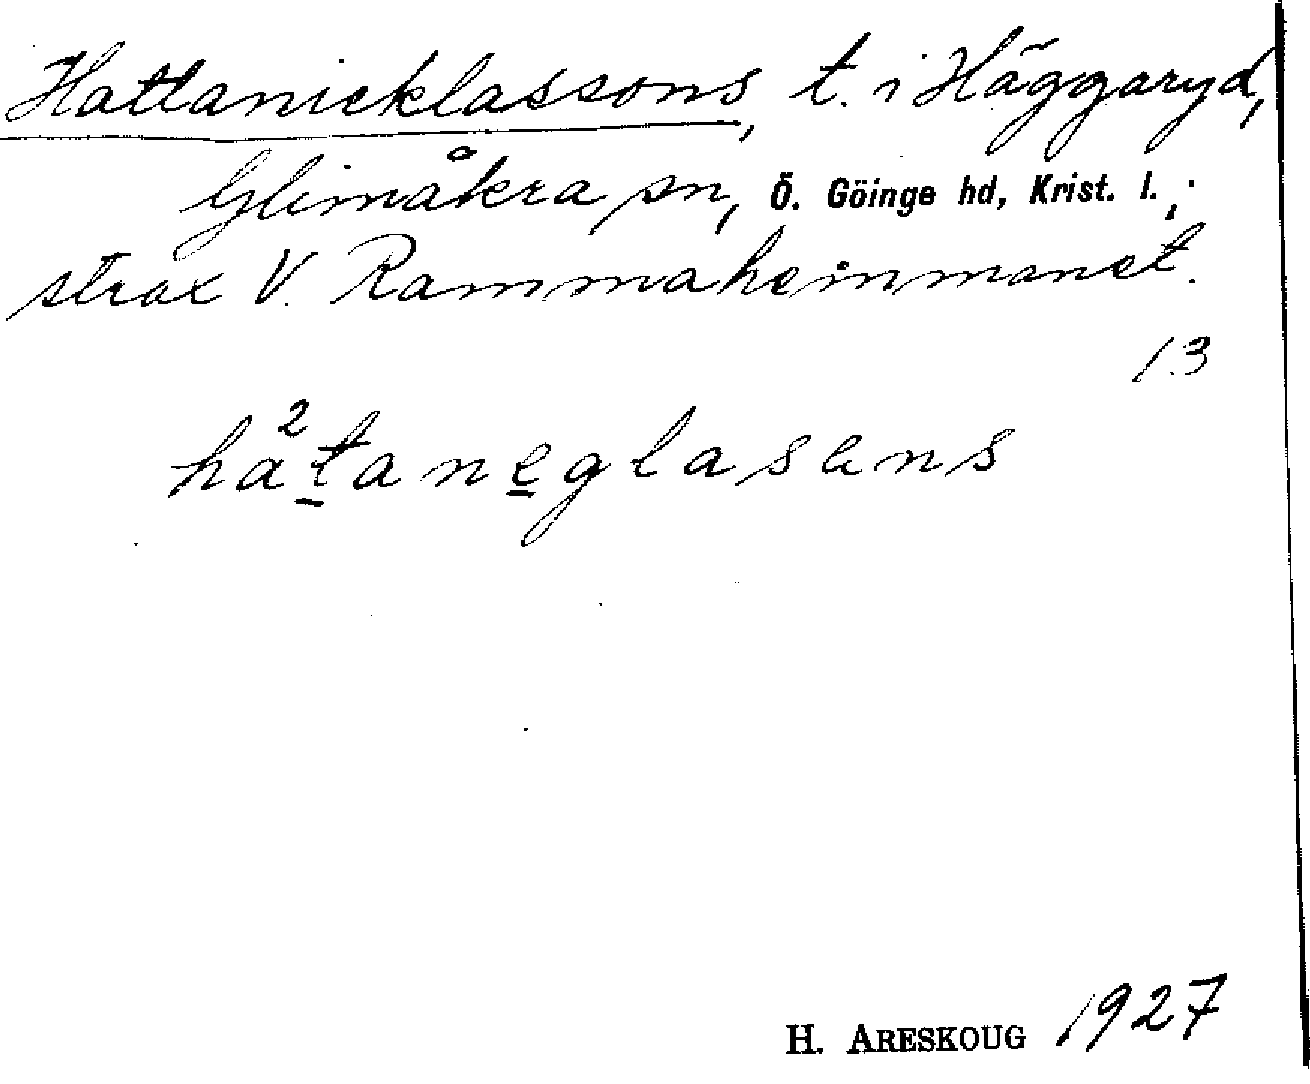 Hattanicklassons, t. i Häggaryd,
Glimåkra sn, Ö. Göinge hd, Krist. l.,;
strax V. Rammahemmanet.
13
ha²taneglasens
H. ARESKOUG 1927